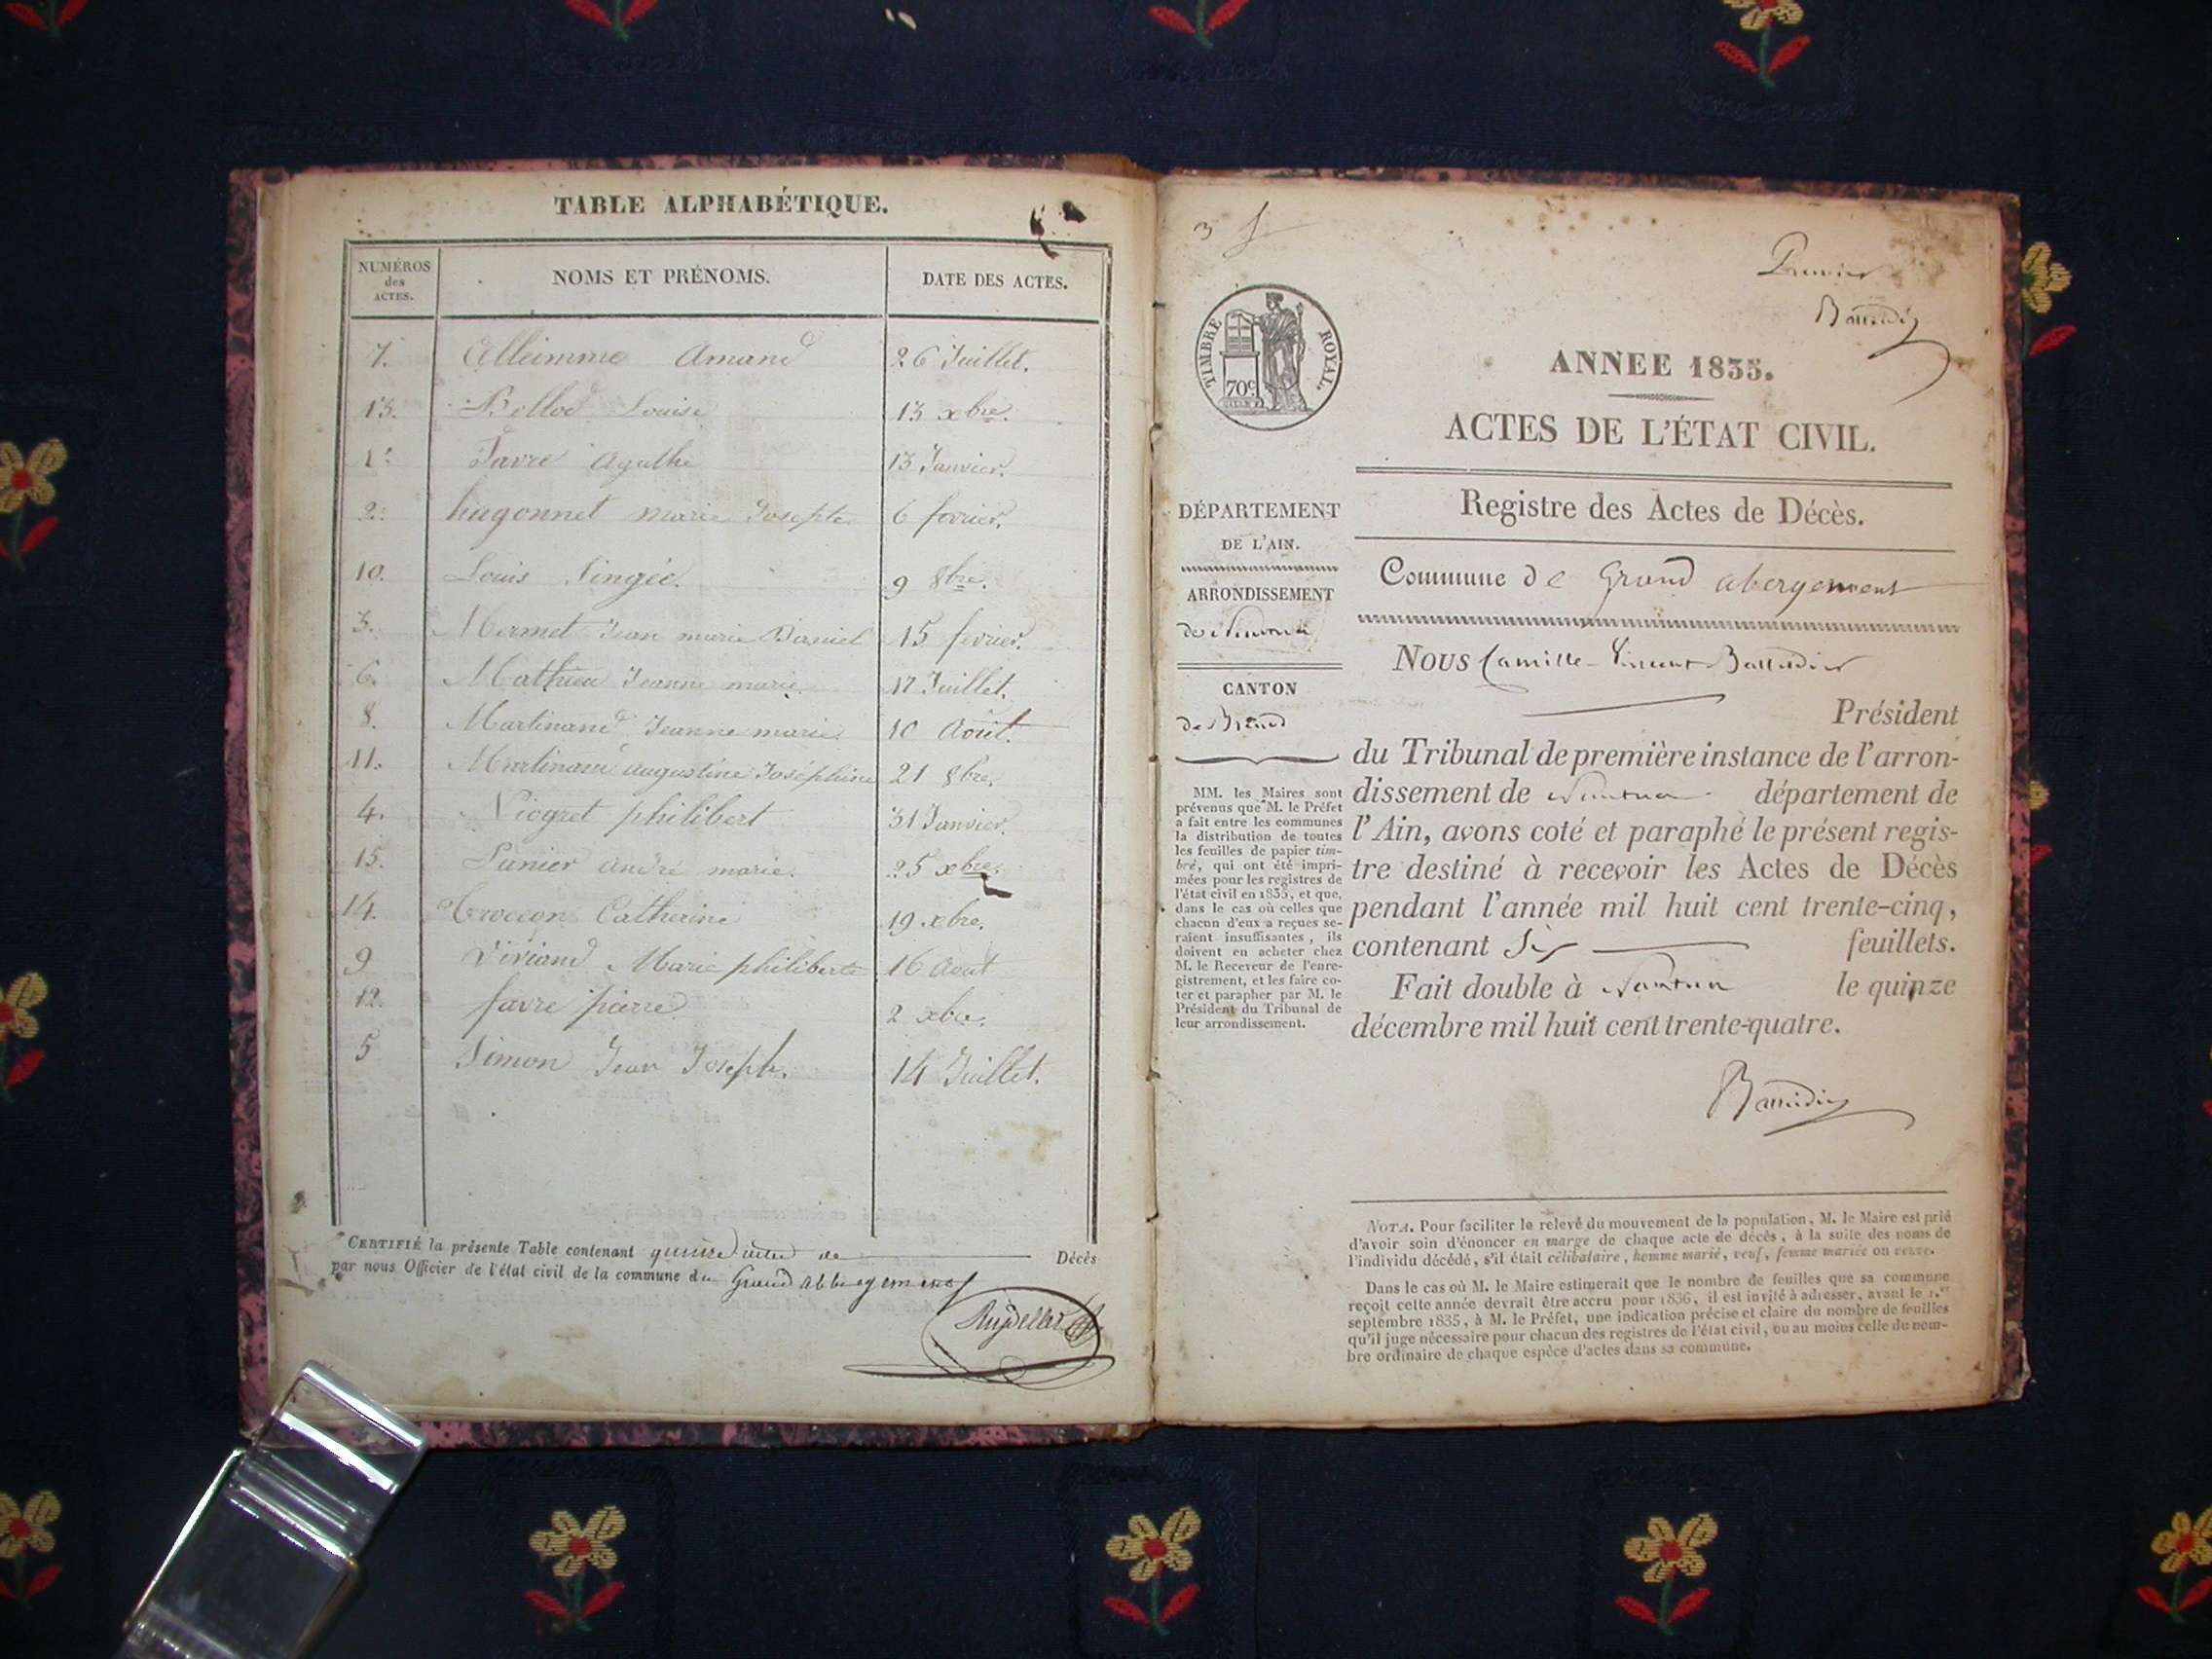 TABLE ALPHABÉTIQUE.
NUMÉROS des ACTES. NOMS ET PRÉNOMS. DATE DES ACTES.
7. Alleimme Amand 26 Juillet.
13. Bollod Louise 13 xbre.
1. Favre Agathe 13 Janvier.
2. hugonnet marie Josephte 6 fevrier.
10. Louis 9 8bre.
3. Mermet Jean marie Daniel 15 fevrier.
6. Mathieu Jeanne marie 17 Juillet.
8. Martinand Jeanne marie 10 Août.
11. Martinand augustine Joséphine 21 8bre.
4. Niogret philibert 31 Janvier.
15. Panier andré marie. 25 xbre.
14. Catherine 19 xbre.
9 Viviand Marie philiberte 16 Aout
12. favre pierre 2 xbre.
5 Simon Jean Joseph. 14 Juillet.
CERTIFIÉ la présente Table contenant quinze actes de Décès
par nous Officier de l'état civil de la commune du Grand abbergement
3
Premier
ANNEE 1835.
TIMBRE ROYAL.
70c
ACTES DE L'ÉTAT CIVIL.
Registre des Actes de Décès.
DÉPARTEMENT
DE L'AIN.
ARRONDISSEMENT
de Nantua
CANTON
de Brenod
MM. les Maires sont
prévenus que M. le Préfet
a fait entre les communes
la distribution de toutes
les feuilles de papier tim-
bré, qui ont été impri-
mées pour les registres de
l'état civil en 1835, et que,
dans le cas où celles que
chacun d'eux a reçues se-
raient insuffisantes, ils
doivent en acheter chez
M. le Receveur de l'enre-
gistrement, et les faire co-
ter et parapher par M. le
Président du Tribunal de
leur arrondissement.
Commune de Grand abergement
Nous Camille-Vincent
Président
du Tribunal de première instance de l'arron-
dissement de Nantua département de
l'Ain, avons coté et paraphé le présent regis-
tre destiné à recevoir les Actes de Décès
pendant l'année mil huit cent trente-cinq,
contenant Six feuillets.
Fait double à Nantua le quinze
décembre mil huit cent trente-quatre.
NOTA. Pour faciliter le relevé du mouvement de la population, M. le Maire est prié
d'avoir soin d'énoncer en marge de chaque acte de décès, à la suite des noms de
l'individu décédé, s'il était célibataire, homme marié, veuf, femme mariée ou veuve.
Dans le cas où M. le Maire estimerait que le nombre de feuilles que sa commune
reçoit cette année devrait être accru pour 1836, il est invité à adresser, avant le 1.er
septembre 1835, à M. le Préfet, une indication précise et claire du nombre de feuilles
qu'il juge nécessaire pour chacun des registres de l'état civil, ou au moins celle du nom-
bre ordinaire de chaque espèce d'actes dans sa commune.